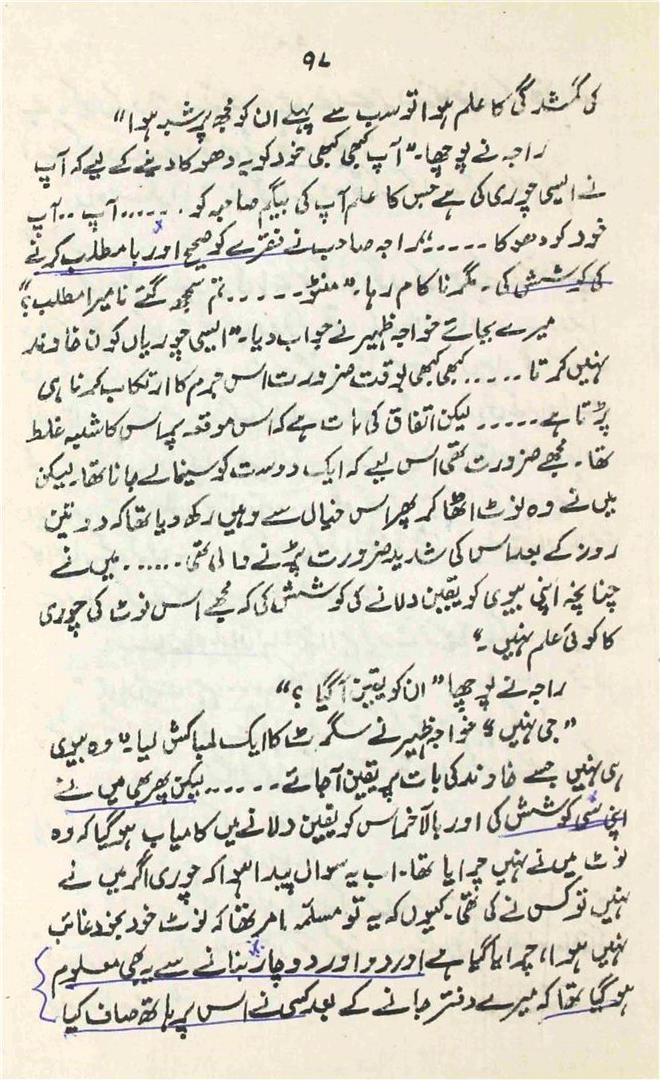 ۹۷
کی گمشدگی کا علم ہوا تو سب سے پہلے ان کو مجھ پر شبہ ہوا"
راجہ نے پوچھا۔"آپ کبھی کبھی خود کو یہ دھوکا دینے کے لیے کہ آپ
نے ایسی چوری کی ہے جس کا علم آپ کی بیگم صاحبہ کو ۔۔۔۔۔۔ آپ ۔۔ آپ
خود کو دھوکا ۔۔۔۔۔" راجہ صاحب نے فقرے کو صحیح اور بامطلب کرنے
کی کوشش کی۔ مگر ناکام رہا۔"منٹو ۔۔۔۔۔ تم سمجھ گئے نا میرا مطلب؟"
میرے بجائے خواجہ ظہیر نے جواب دیا۔"ایسی چوریاں کون خاوند
نہیں کرتا ۔۔۔۔۔ کبھی کبھی بوقت ضرورت اس جرم کا ارتکاب کرنا ہی
پڑتا ہے ۔۔۔۔۔ لیکن اتفاق کی بات ہے کہ اس موقعہ پر اس کا شبہ غلط
تھا۔ مجھے ضرورت تھی اس لیے کہ ایک دوست کو سینما لے جانا تھا۔ لیکن
میں نے وہ نوٹ اٹھا کر پھر اس خیال سے وہیں رکھ دیا تھا کہ دو تین
روز کے بعد اس کی شدید ضرورت پڑنے والی تھی ۔۔۔۔۔۔ میں نے
چنانچہ اپنی بیوی کو یقین دلانے کی کوشش کی کہ مجھے اس نوٹ کی چوری
کا کوئی علم نہیں۔"
راجہ نے پوچھا" ان کو یقین آگیا ؟"
"جی نہیں" خواجہ ظہیر نے سگرٹ کا ایک لمبا کش لیا۔" وہ بیوی
ہی نہیں جسے خاوند کی بات پر یقین آجائے ۔۔۔۔۔۔ لیکن پھر بھی میں نے
اپنی سی کوشش کی اور بالآخر اس کو یقین دلانے میں کامیاب ہوگیا کہ وہ
نوٹ میں نے نہیں چرایا تھا۔ اب یہ سوال پیدا ہوا کہ چوری اگر میں نے
نہیں تو کس نے کی تھی۔ کیوں کہ یہ تو مسلمہ امر تھا کہ نوٹ خود بخود غائب
نہیں ہوا، چرایا گیا ہے اور دو اور دو چار بنانے سے یہ بھی معلوم
ہو گیا تھا کہ میرے دفتر جانے کے بعد کسی نے اس پر ہاتھ صاف کیا